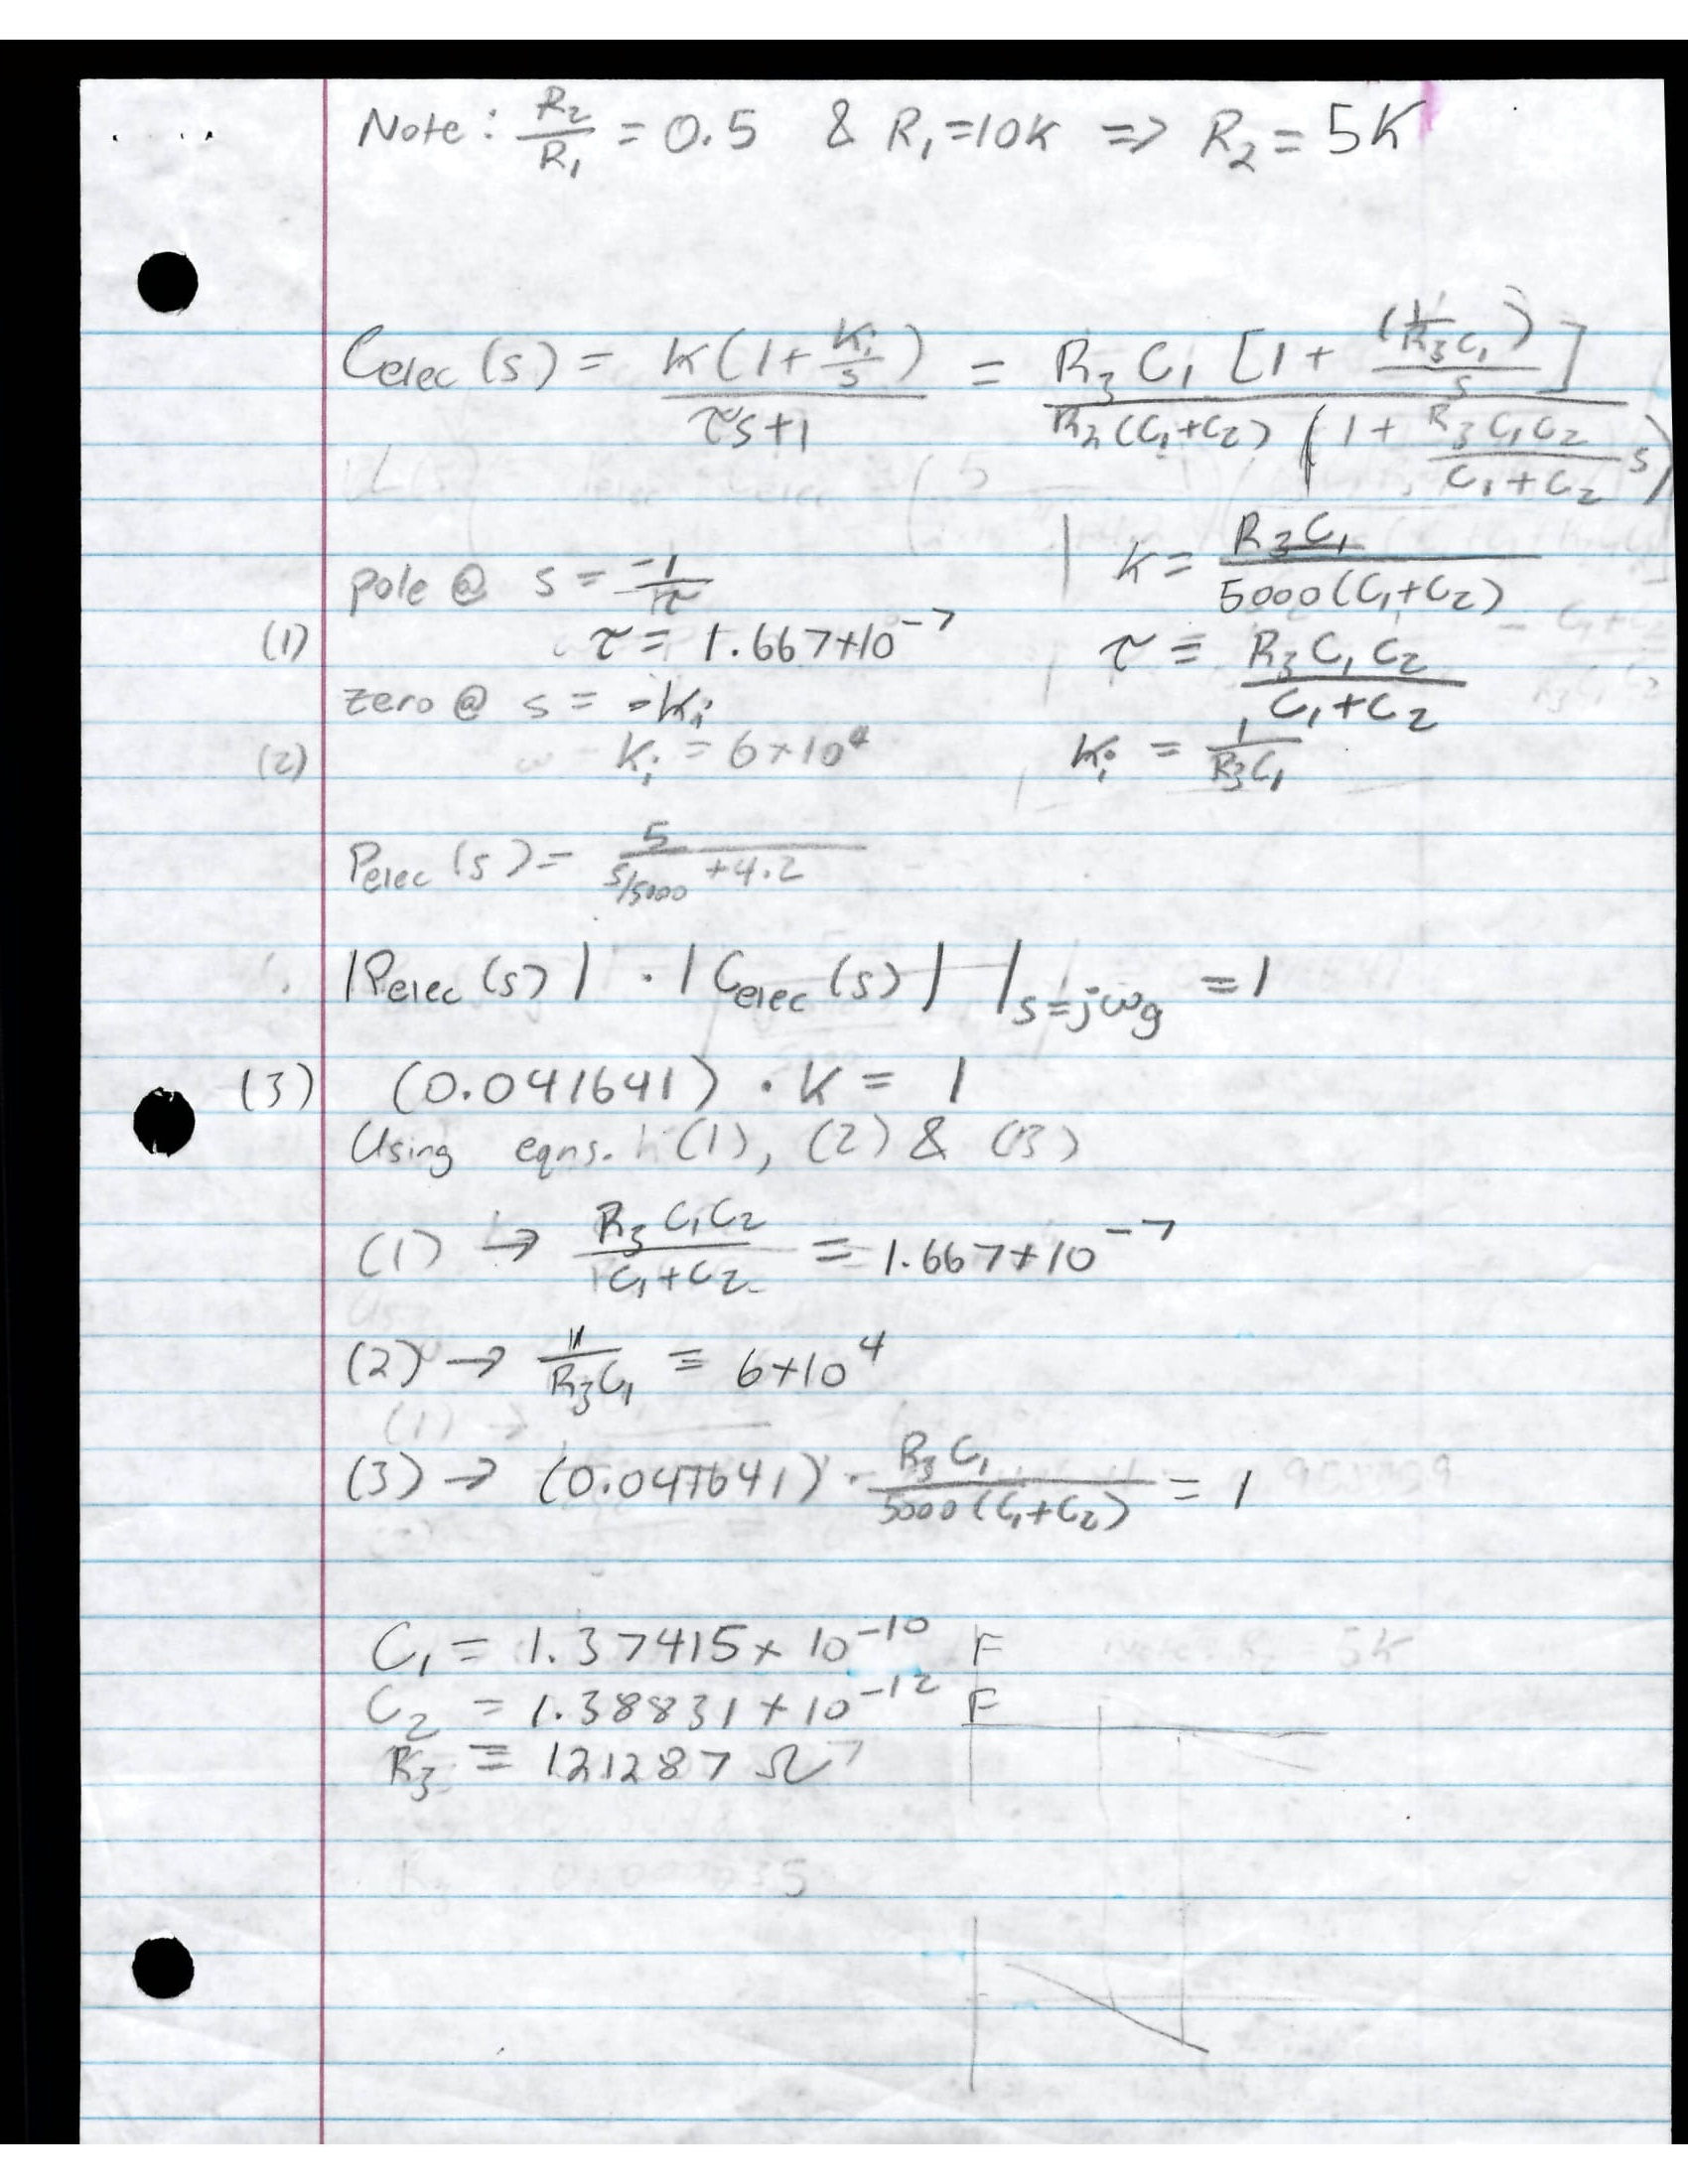 Note: R₂/R₁ = 0.5 & R₁=10K => R₂ = 5K
Celec (s) = K(1+ Ki/s) / τs+1 = R₃ C₁ [1 + (1/R₃C₁)/s] / R₂(C₁+C₂) (1 + R₃C₁C₂/C₁+C₂ s)
pole @ s = -1/τ | K = R₃C₁/5000(C₁+C₂)
(1) τ = 1.667×10⁻⁷ τ = R₃C₁C₂/C₁+C₂
zero @ s = -Ki
(2) Ki = 6×10⁴ Ki = 1/R₃C₁
Pelec (s) = 5 / s/5000 +4.2
|Pelec (s)| · |Celec (s)| |s=jωg = 1
(3) (0.041641) · K = 1
Using eqns. (1), (2) & (3)
(1) → R₃C₁C₂/C₁+C₂ = 1.667×10⁻⁷
(2) → 1/R₃C₁ = 6×10⁴
(3) → (0.041641) · R₃C₁/5000(C₁+C₂) = 1
C₁ = 1.37415×10⁻¹⁰ F
C₂ = 1.38831×10⁻¹² F
R₃ = 121287 Ω